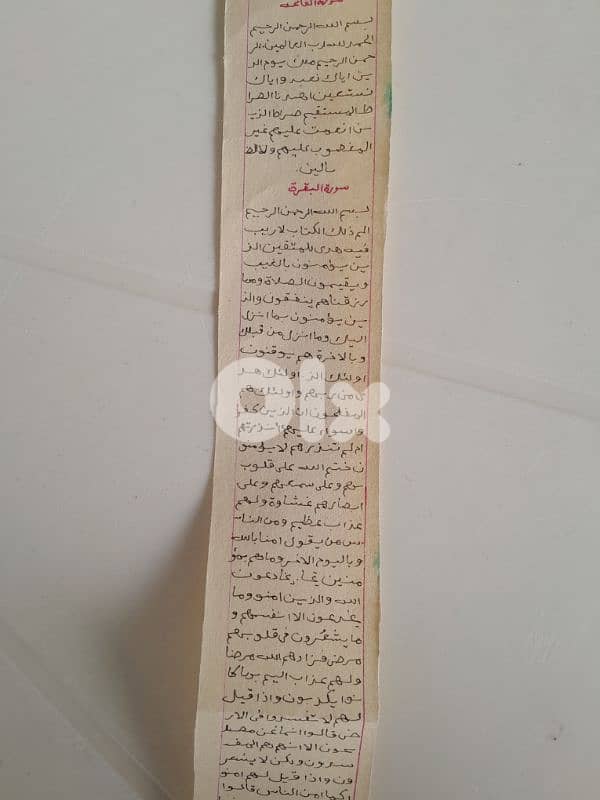 سورة الفاتحه
بسم الله الرحمن الرحيم
الحمد لله رب العالمين الر
حمن الرحيم ملك يوم الد
ين اياك نعبد و اياك
نستعين اهدنا الصرا
ط المستقيم صراط الذ
ين انعمت عليهم غير
المغضوب عليهم ولا الض
الين.
سورة البقرة
بسم الله الرحمن الرحيم
الم ذلك الكتاب لا ريب
فيه هدى للمتقين الذ
ين يؤمنون بالغيب
ويقيمون الصلاة ومما
رزقناهم ينفقون والذ
ين يؤمنون بما انزل
اليك وما انزل من قبلك
وبالاخرة هم يوقنون
اولئك
من ربهم واولئك هم
المفلحون ان الذين كفرو
ا سواء عليهم أنذرتهم
ام لم تنذرهم لا يؤمنو
ن ختم الله على قلوب
بهم وعلى سمعهم وعلى
ابصارهم غشاوة ولهم
عذاب عظيم ومن النا
س من يقول امنا بالله
وباليوم الاخر وما هم بمؤ
منين يخادعون
الله والذين امنو وما
يخدعون الا انفسهم و
ما يشعرون في قلوبهم
مرض فزادهم الله مرضا
ولهم عذاب اليم بما كا
نوا يكذبون واذا قيل
لهم لا تفسدوا في الار
ض قالوا انما نحن مصلـ
حون الا انهم هم المفـ
سدون ولكن لا يشعر
ون واذا قيل لهم امنو
ا كما امن الناس قالوا
olx